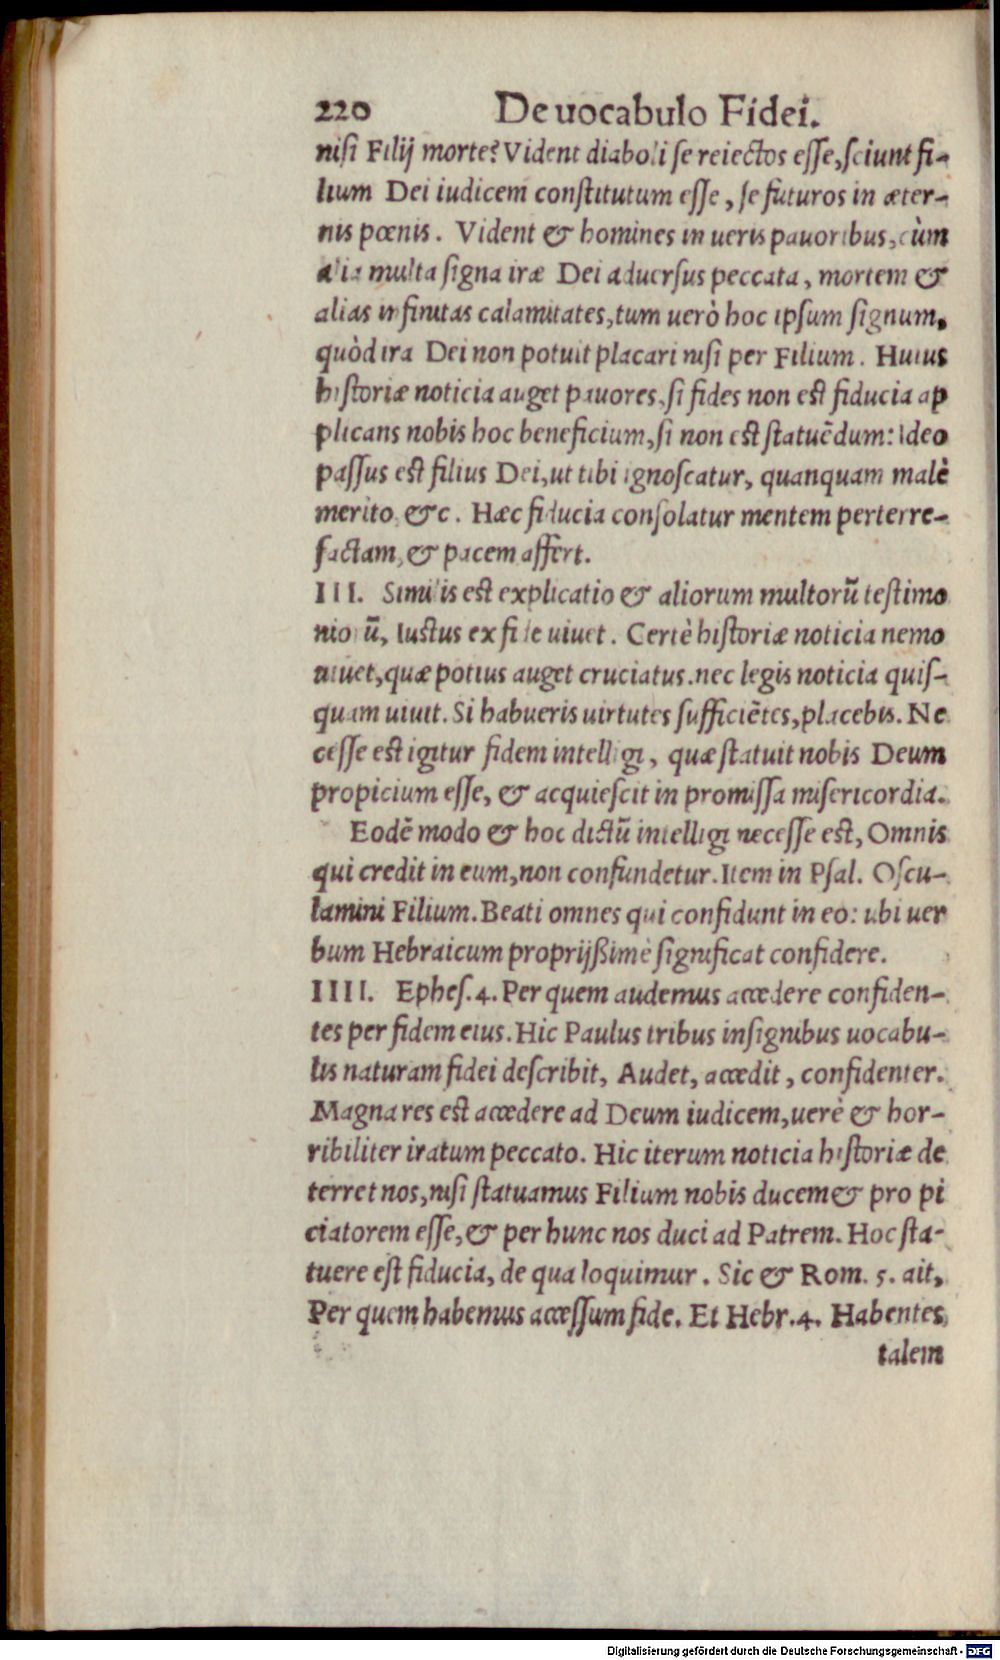 220 De uocabulo Fidei.
nisi Filij morte? Vident diaboli se reiectos esse, sciunt fi-
lium Dei iudicem constitutum esse, se futuros in æter-
nis pœnis. Vident & homines in ueris pauoribus, cùm
alia multa signa iræ Dei aduersus peccata, mortem &
alias infinitas calamitates, tum uerò hoc ipsum signum,
quòd ira Dei non potuit placari nisi per Filium. Huius
historiæ noticia auget pauores, si fides non est fiducia ap
plicans nobis hoc beneficium, si non est statuēdum: Ideo
passus est filius Dei, ut tibi ignoscatur, quanquam malè
merito, &c. Hæc fiducia consolatur mentem perterre-
factam, & pacem affert.
III. Similis est explicatio & aliorum multorū testimo
niorū, Iustus ex fide uiuet. Certè historiæ noticia nemo
uiuet, quæ potius auget cruciatus. nec legis noticia quis-
quam uiuit. Si habueris uirtutes sufficiētes, placebis. Ne
cesse est igitur fidem intelligi, quæ statuit nobis Deum
propicium esse, & acquiescit in promissa misericordia.
Eodē modo & hoc dictū intelligi necesse est, Omnis
qui credit in eum, non confundetur. Item in Psal. Oscu-
lamini Filium. Beati omnes qui confidunt in eo: ubi uer
bum Hebraicum proprijßimè significat confidere.
IIII. Ephes. 4. Per quem audemus accedere confiden-
tes per fidem eius. Hic Paulus tribus insignibus uocabu-
lis naturam fidei describit, Audet, accedit, confidenter.
Magna res est accedere ad Deum iudicem, uerè & hor-
ribiliter iratum peccato. Hic iterum noticia historiæ de
terret nos, nisi statuamus Filium nobis ducem & pro pi
ciatorem esse, & per hunc nos duci ad Patrem. Hoc sta-
tuere est fiducia, de qua loquimur. Sic & Rom. 5. ait,
Per quem habemus accessum fide. Et Hebr. 4. Habentes
talem
Digitalisierung gefördert durch die Deutsche Forschungsgemeinschaft - DFG